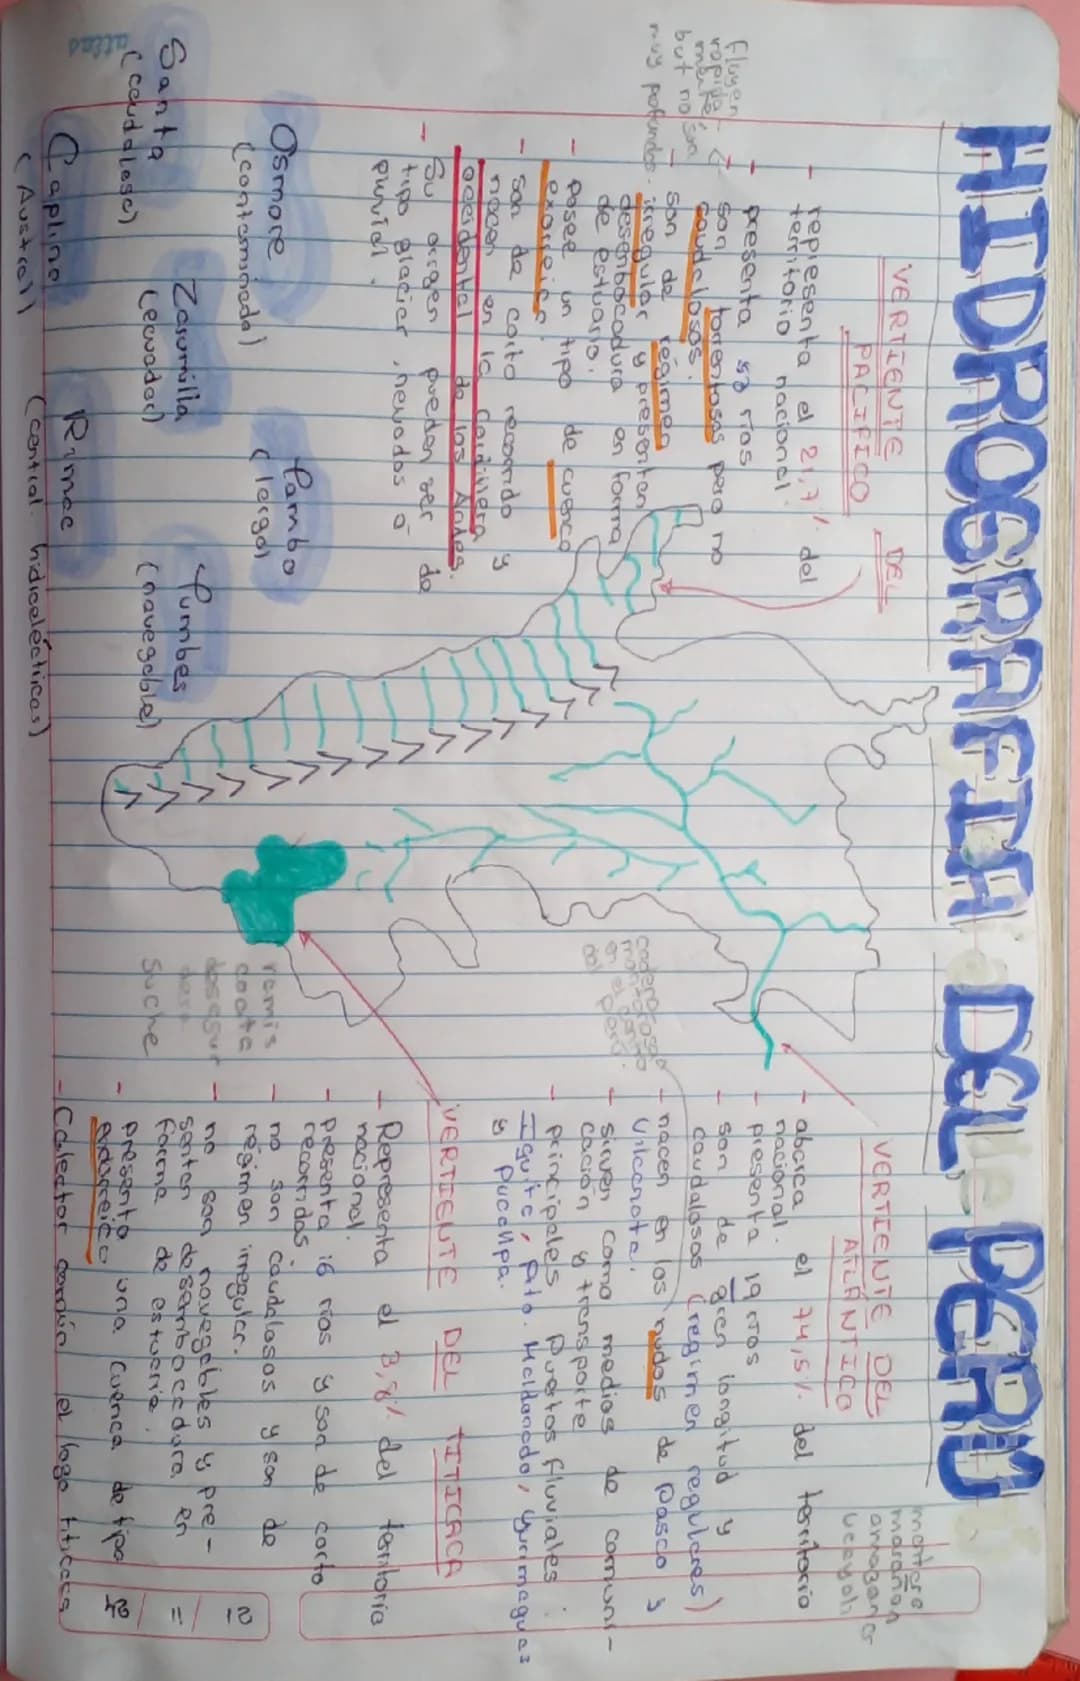 HIDROGRAFIA DEL PERU
VERTIENTE DEL
PACIFICO
- representa el 21,7% del
territorio nacional.
- presenta 53 ríos
- son torrentosos pero no
caudalosos.
fluyen
rapida-
mente
but no son
muy profundos.
- son de régimen
irregular y presentan
desenbocadura en forma
de estuario.
- posee un tipo de cuenca
exorreica.
- son de corto recorrido y
nacen en la Cordillera
occidental de los Andes.
- Su origen pueden ser de
tipo glaciar, nevados o
pluvial.
Osmore
(contaminado)
Tambo
(largo)
Santa
(caudaloso)
Zarumilla
(ecuador)
Tumbes
(navegable)
Caplina
(Austral)
Rimac
(central hidroeléctricas)
VERTIENTE DEL
ATLANTICO
- abarca el 74,5% del territorio
nacional.
- presenta 19 ríos
- son de gran longitud y
caudalosos (regimen regulares)
- nacen en los nudos de Pasco y
Vilcanota.
- sirven como medios de comuni-
cación y transporte
- principales Puertos fluviales:
Iquito, Pto. Maldonado, Yurimaguas
y Pucallpa.
VERTIENTE DEL TITICACA
- Representa el 3,8% del territorio
nacional.
- presenta 16 ríos y son de corto
recorridos
- no son caudalosos y son de
régimen irregular.
- no son navegables y pre-
sentan desembocedura en
forma de estuario.
- presenta una cuenca de tipo
endorreico
- Colector común el lago titicaca
ramis
coata
suche